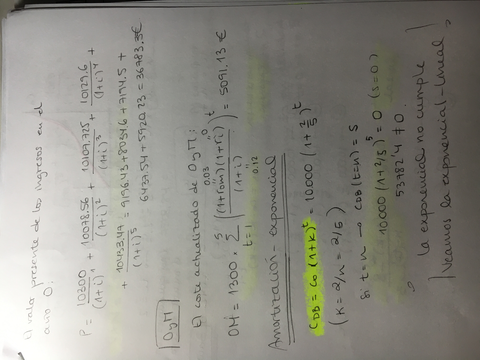 El valor presente de los ingresos en el
año 0:
P = 10300/(1+i)^1 + 10078.56/(1+i)^2 + 10109.725/(1+i)^3 + 10129.6/(1+i)^4 +
+ 10433.47/(1+i)^5 = 9196.43 + 8034.6 + 7194.5 +
6437.54 + 5920.23 = 36783.3€
OyM
El coste actualizado de OyM:
0.03 0
OM = 1300 · Σ_{t=1}^{5} ((1+rom)(1+ri)/(1+i))^t = 5091.13 €
0.12
Amortización - exponencial
CDB = C0 (1+K)^t = 10000 (1+2/5)^t
(K = 2/n = 2/5)
Si t=n → CDB(t=n) = S
10000 (1+2/5)^5 = 0 (S=0)
53782'4 ≠ 0.
la exponencial no cumple
Veamos la exponencial-lineal